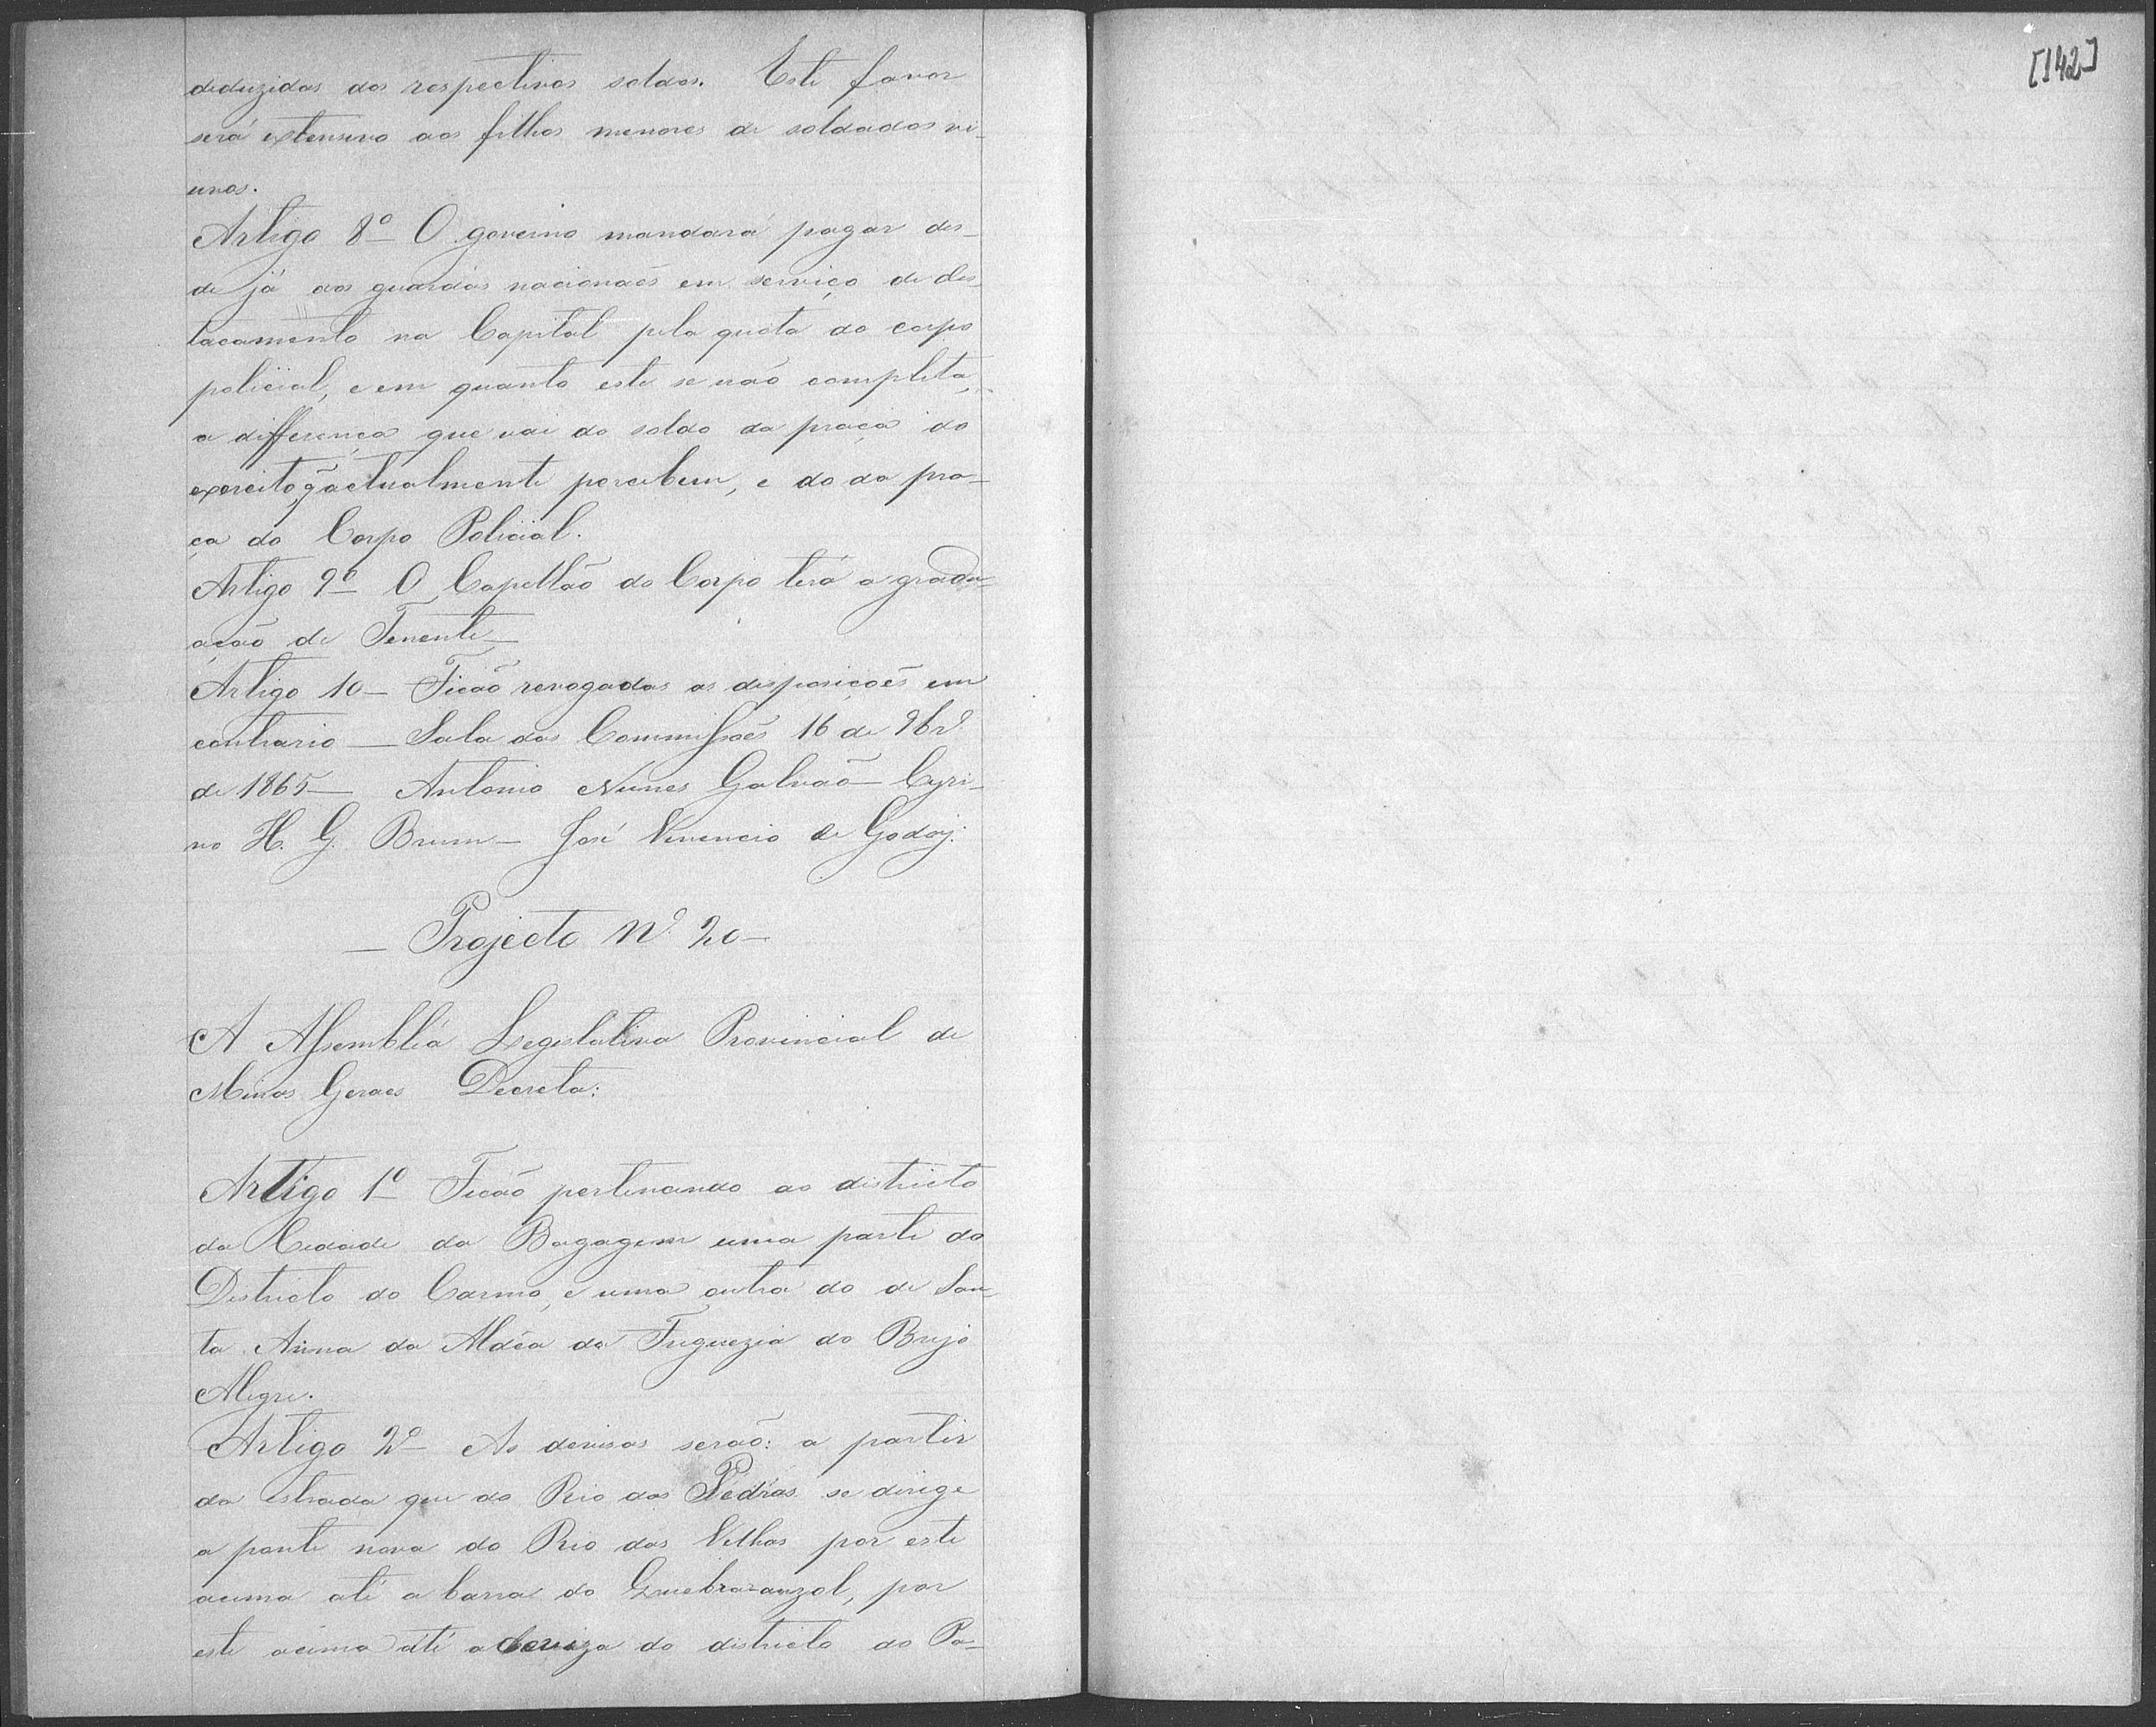 deduzidas dos respectivos soldos. Este favor
será extensivo aos filhos menores de soldados vi-
uvos.
Artigo 8º O governo mandará pagar des-
de já aos guardas nacionaes em serviço de des-
tacamento na Capital pela quota do corpo
policial, e em quanto este se não completa,
a differença que vai do soldo da praça do
exercito q̃ actualmente percebem, e do da pra-
ça do Corpo Policial.
Artigo 9º O Capellão do Corpo terá a gradu-
ação de Tenente
Artigo 10 - Ficão revogadas as disposições em
contrario - Sala das Commissões 16 de 9brº
de 1865 - Antonio Nunes Galvão - Cyri-
no H. G. Brum - José Venencio de Godoy.
- Projecto Nº 20 -
A Assembléa Legislativa Provincial de
Minas Geraes Decreta:
Artigo 1º Ficão pertencendo ao districto
da Cidade da Bagagem uma parte do
Districto do Carmo, e uma outra do de San-
ta Anna da Aldêa da Freguezia do Brejo
Alegre.
Artigo 2º As devisas serão: a partir
da estrada que do Rio das Pedras se dirige
a ponte nova do Rio das Velhas por este
acima até a barra do Quebra-anzol, por
este acima até a deviza do districto do Pa-
[142]